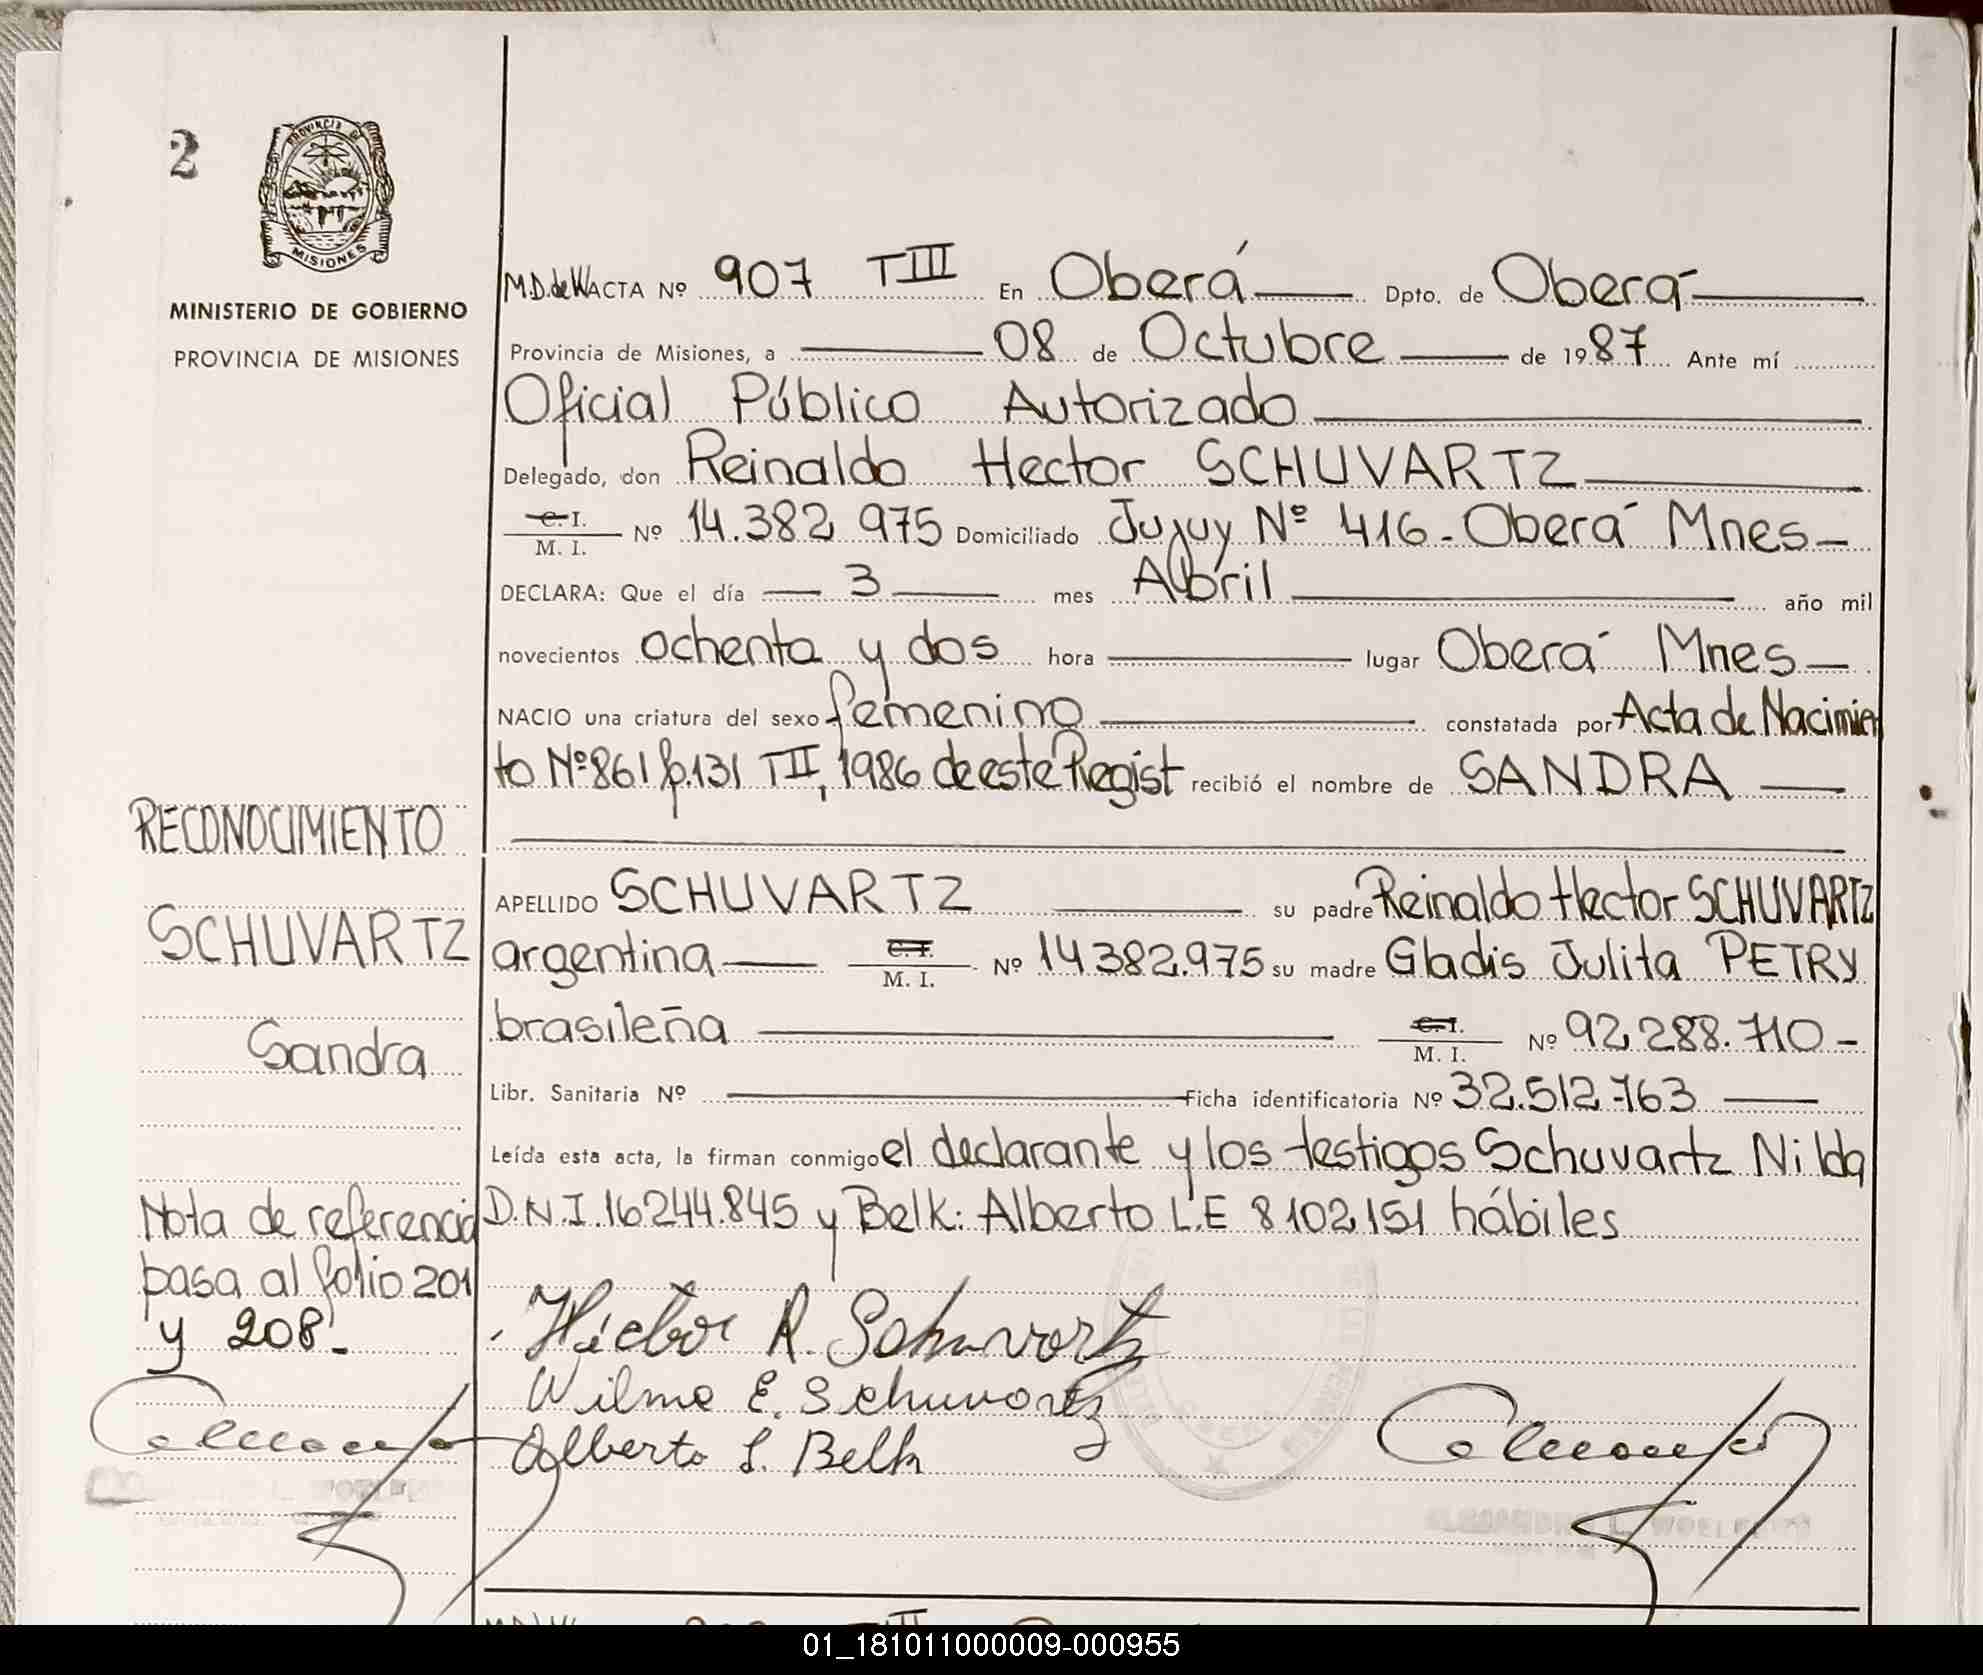 2
PROVINCIA DE
MISIONES
MINISTERIO DE GOBIERNO
PROVINCIA DE MISIONES
M.D.deW ACTA Nº 907 TIII En Oberá Dpto. de Oberá
Provincia de Misiones, a 08 de Octubre de 1987 Ante mí
Oficial Público Autorizado
Delegado, don Reinaldo Hector SCHUVARTZ
C. I.
M. I. Nº 14.382.975 Domiciliado Jujuy Nº 416 - Oberá Mnes
DECLARA: Que el día 3 mes Abril año mil
novecientos ochenta y dos hora lugar Oberá Mnes
NACIO una criatura del sexo femenino constatada por Acta de Nacimien
to Nº 861 f.131 TII, 1986 de este Regist recibió el nombre de SANDRA
RECONOCIMIENTO
SCHUVARTZ
Sandra
APELLIDO SCHUVARTZ su padre Reinaldo Hector SCHUVARTZ
argentina C. I. M. I. Nº 14.382.975 su madre Gladis Julita PETRY
brasileña C. I. M. I. Nº 92.288.710 -
Libr. Sanitaria Nº Ficha identificatoria Nº 32.512.763
Leída esta acta, la firman conmigo el declarante y los testigos Schuvartz Nilda
D.N.I. 16.244.845 y Belk: Alberto L.E 8102151 hábiles
Nota de referencia
pasa al folio 201
y 208 -
Héctor R. Schuvartz
Wilma E. Schuvartz
Alberto S. Belk
01_181011000009-000955